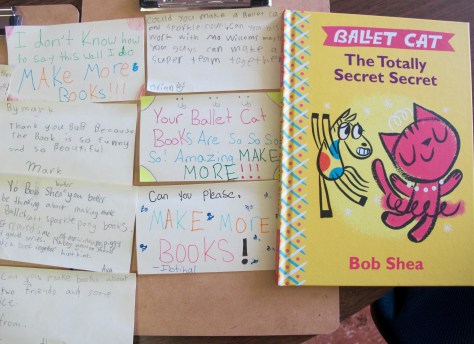 I don't know how
to say this well I do
MAKE MORE
BOOKS!!!
Could you make a Ballet Cat
and
work with Mo Willems
you guys can make a
super team together
By mark
Thank you Bob Because
The Book is so funny
and so Beautiful
Mark
Your Ballet Cat
Books Are So So So
So! Amazing MAKE
MORE!!!
Yo Bob Shea you better
be thinking about making more
Ballet cat sparkle pony books
Ava
Can you Please.
MAKE MORE
BOOKS!
-Ibtihal
Can you make books about
two friends and some
from..
BALLET CAT
The Totally
Secret Secret
Bob Shea